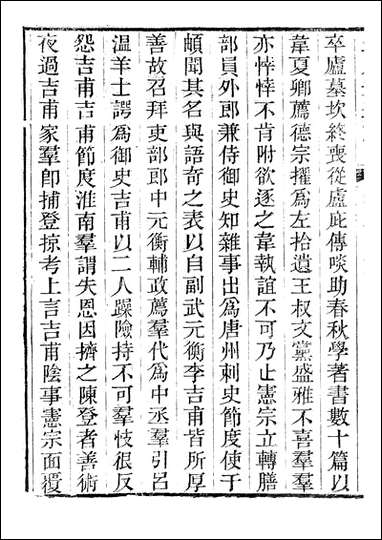 卒廬墓坎終喪從盧庇傳啖助春秋學著書數十篇以
韋夏卿薦德宗擢爲左拾遺王叔文黨盛雅不喜羣羣
亦悻悻不肯附欲逐之韋執誼不可乃止憲宗立轉膳
部員外郎兼侍御史知雜事出爲唐州刺史節度使于
頔聞其名與語奇之表以自副武元衡李吉甫皆所厚
善故召拜吏部郎中元衡輔政薦羣代爲中丞羣引呂
溫羊士諤爲御史吉甫以二人躁險持不可羣忮很反
怨吉甫吉甫節度淮南羣謂失恩因擠之陳登者善術
夜過吉甫家羣卽捕登掠考上言吉甫陰事憲宗面覆